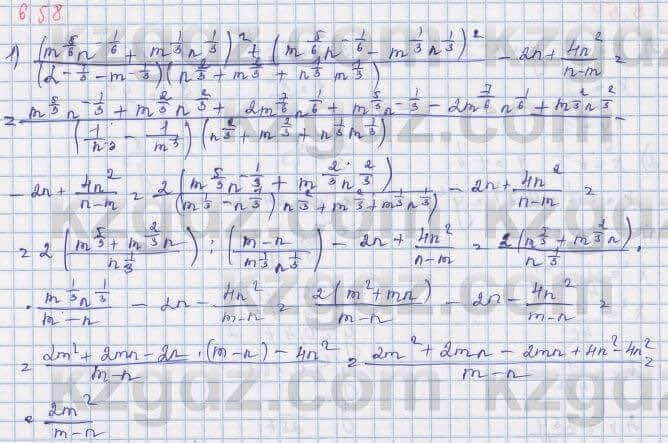 658
1) ((m^(5/6) n^(-1/6) + m^(1/3) n^(1/3))^2 + (m^(5/6) n^(-1/6) - m^(1/3) n^(1/3))^2) / ((2^(-1/3) - m^(-1/3))(n^(2/3) + m^(2/3) + n^(1/3) m^(1/3))) - 2n + 4n^2/(n-m) =
= (m^(5/3) n^(-1/3) + m^(2/3) n^(2/3) + 2m^(7/6) n^(1/6) + m^(5/3) n^(-1/3) - 2m^(7/6) n^(1/6) + m^(2/3) n^(2/3)) / ((1/n^(1/3) - 1/m^(1/3))(n^(2/3) + m^(2/3) + n^(1/3) m^(1/3))) -
- 2n + 4n^2/(n-m) = 2(m^(5/3) n^(-1/3) + m^(2/3) n^(2/3)) / ((m^(1/3) - n^(1/3)) n^(2/3) + m^(2/3) + m^(1/3) n^(1/3)) - 2n + 4n^2/(n-m) =
= 2((m^(5/3) + m^(2/3) n)/n^(1/3)) : ((m-n)/(m^(1/3) n^(1/3))) - 2n + 4n^2/(n-m) = 2(m^(5/3) + m^(2/3) n)/n^(1/3) ·
· m^(1/3) n^(1/3)/(m-n) - 2n - 4n^2/(m-n) = 2(m^2 + mn)/(m-n) - 2n - 4n^2/(m-n) =
= (2m^2 + 2mn - 2n · (m-n) - 4n^2)/(m-n) = (2m^2 + 2mn - 2mn + 4n^2 - 4n^2)/(m-n) =
= 2m^2/(m-n)
kzgdz.com